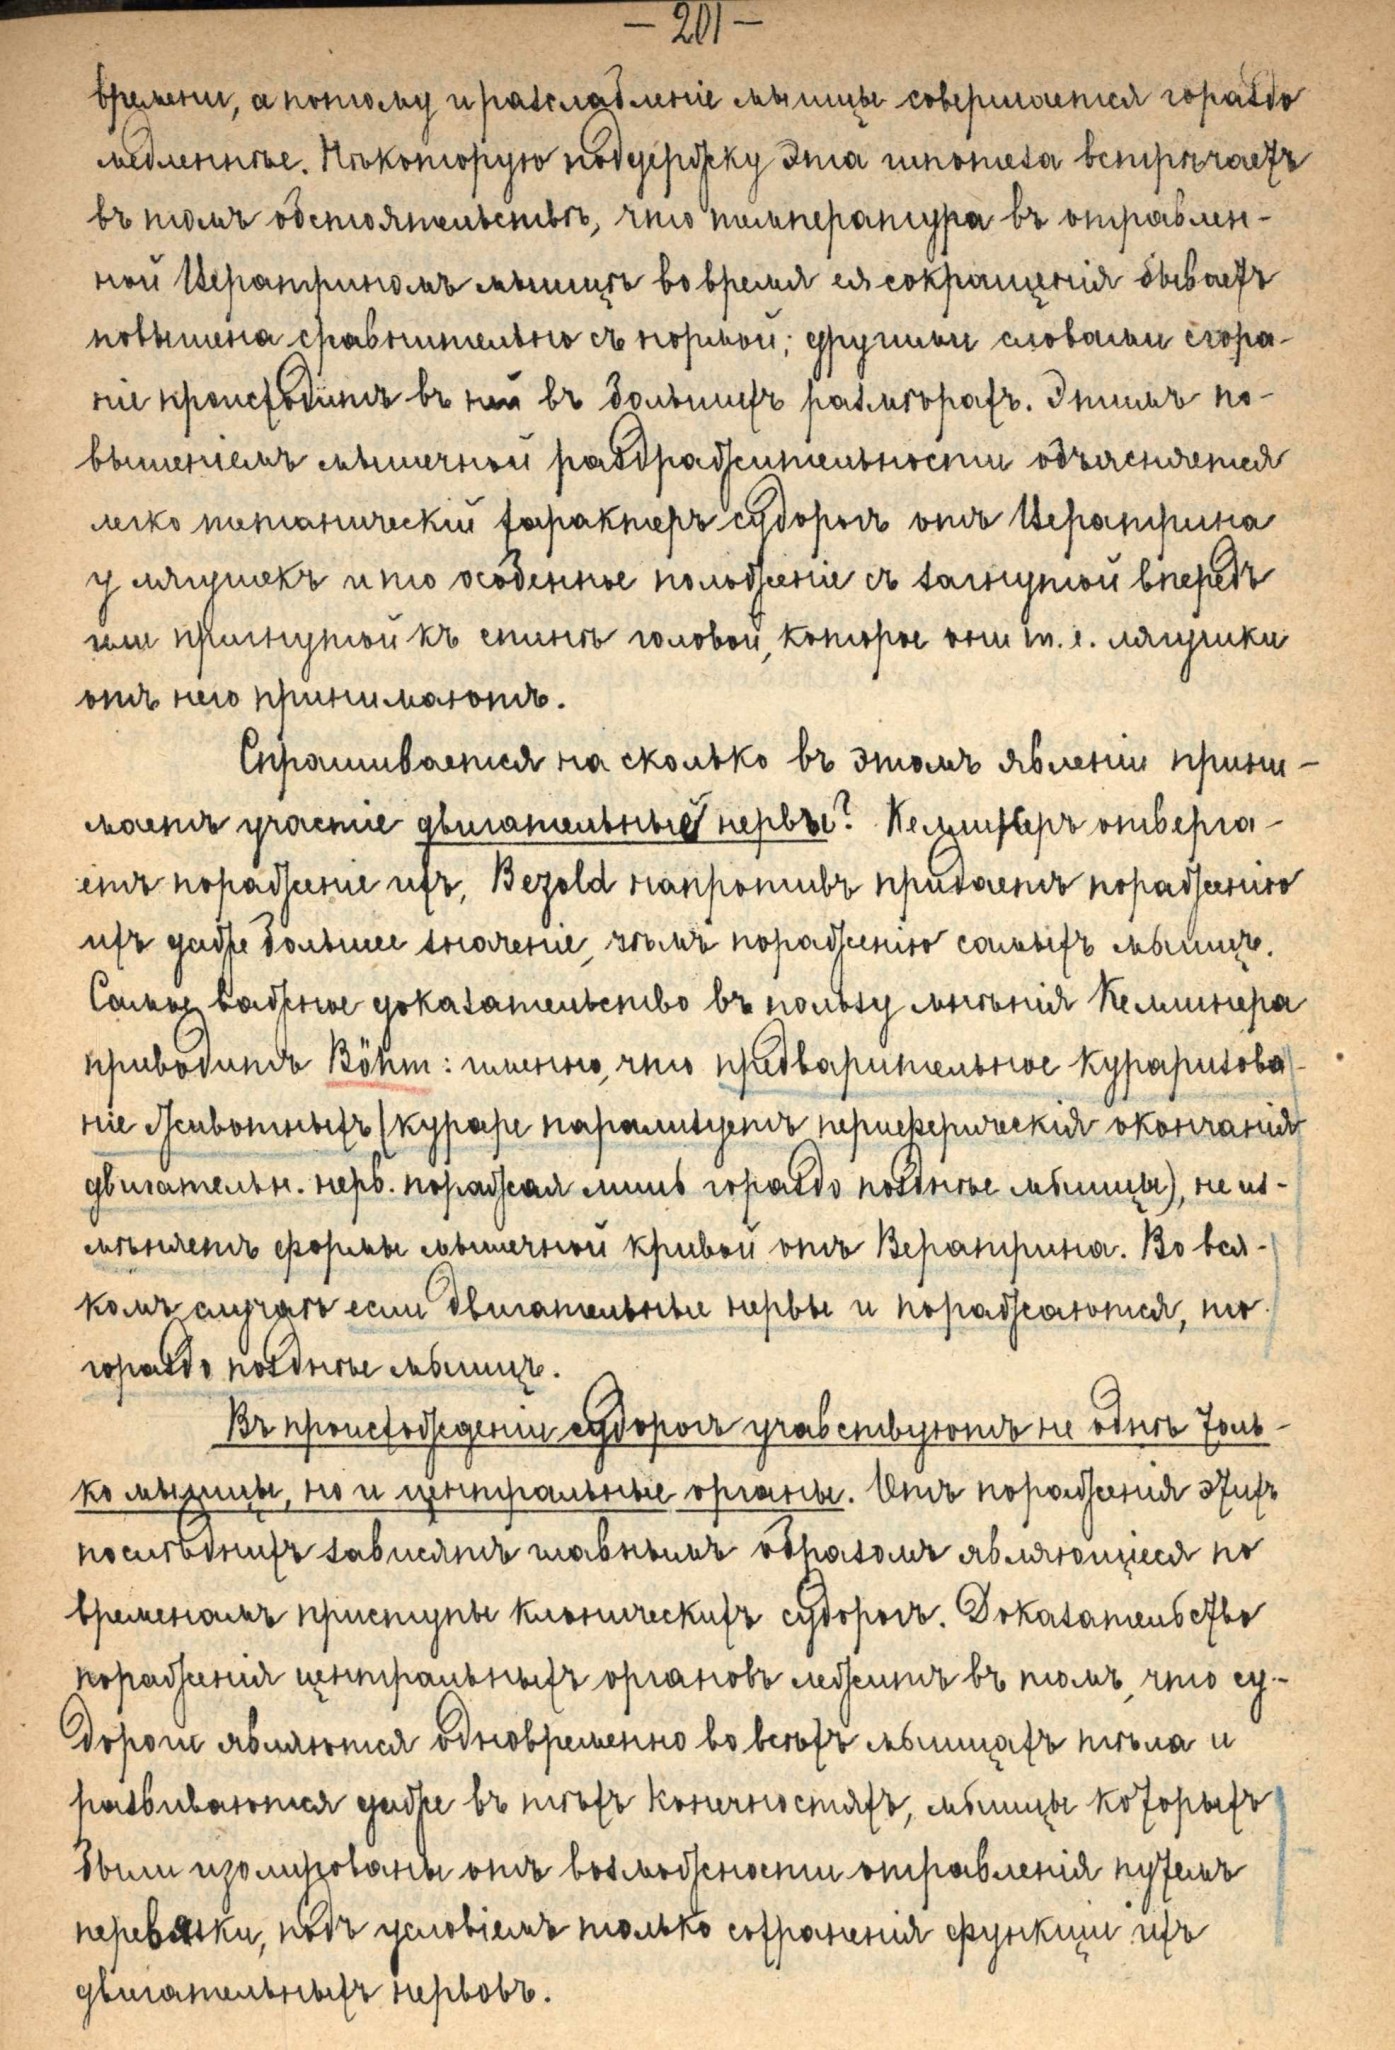 — 201 —
времени, а потому и разслабленіе мышцы совершается гораздо
медленнѣе. Нѣкоторую поддержку эта гипотеза встрѣчаетъ
въ томъ обстоятельствѣ, что температура въ отравлен-
ной Вератриномъ мышцѣ во время ея сокращенія бываетъ
повышена сравнительно съ нормой; другими словами сгора-
ніе происходитъ въ ней въ большихъ размѣрахъ. Этимъ по-
вышеніемъ мышечной раздражительности объясняется
легко тетаническій характеръ судорогъ отъ Вератрина
у лягушекъ и то особенное положеніе съ загнутой впередъ
или пригнутой къ спинѣ головой, которое они т. е. лягушки
отъ него принимаютъ.
Спрашивается на сколько въ этомъ явленіи прини-
маетъ участіе двигательный нервы? Келликеръ отверга-
етъ пораженіе ихъ, Bezold напротивъ придаетъ пораженію
ихъ даже большее значеніе, чѣмъ пораженію самыхъ мышцъ.
Самое важное доказательство въ пользу мнѣнія Келликера
приводитъ Böhm: именно, что предварительное кураризова-
ніе животныхъ (кураре парализуетъ периферическія окончанія
двигательн. нерв. поражая лишь гораздо позднѣе мышцы), не из-
мѣняетъ формы мышечной кривой отъ Вератрина. Во вся-
комъ случаѣ если двигательные нервы и поражаются, то
гораздо позднѣе мышцъ.
Въ происхожденіи судорогъ учавствуютъ не однѣ толь-
ко мышцы, но и центральные органы. Отъ пораженія этихъ
послѣднихъ зависятъ главнымъ образомъ являющіеся по
временамъ приступы клоническихъ судорогъ. Доказательство
пораженія центральныхъ органовъ лежитъ въ томъ, что су-
дороги являются одновременно во всѣхъ мышцахъ тѣла и
развиваются даже въ тѣхъ конечностяхъ, мышцы которыхъ
были изолированы отъ возможности отравленія путемъ
перевязки, подъ условіемъ только сохраненія функціи ихъ
двигательныхъ нервовъ.